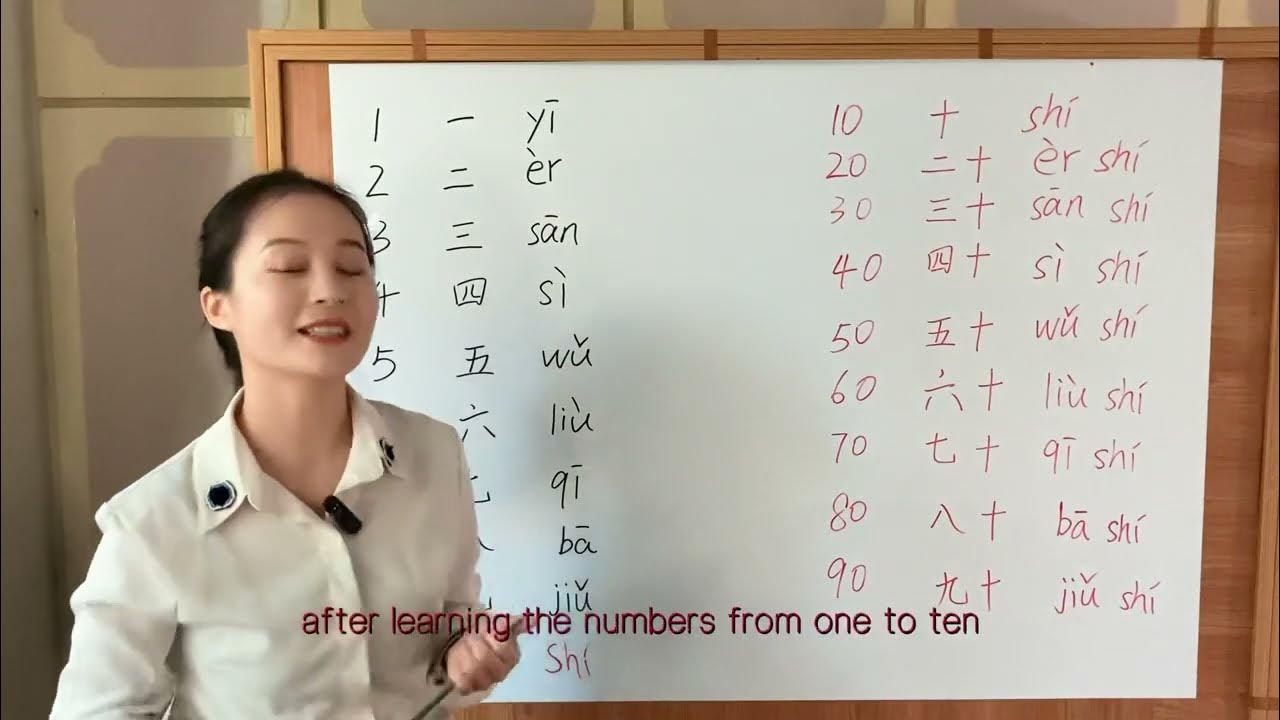 1 一 yī
2 二 èr
3 三 sān
四 sì
5 五 wǔ
六 liù
qī
bā
jiǔ
Shí
10 十 shí
20 二十 èr shí
30 三十 sān shí
40 四十 sì shí
50 五十 wǔ shí
60 六十 liù shí
70 七十 qī shí
80 八十 bā shí
90 九十 jiǔ shí
after learning the numbers from one to ten